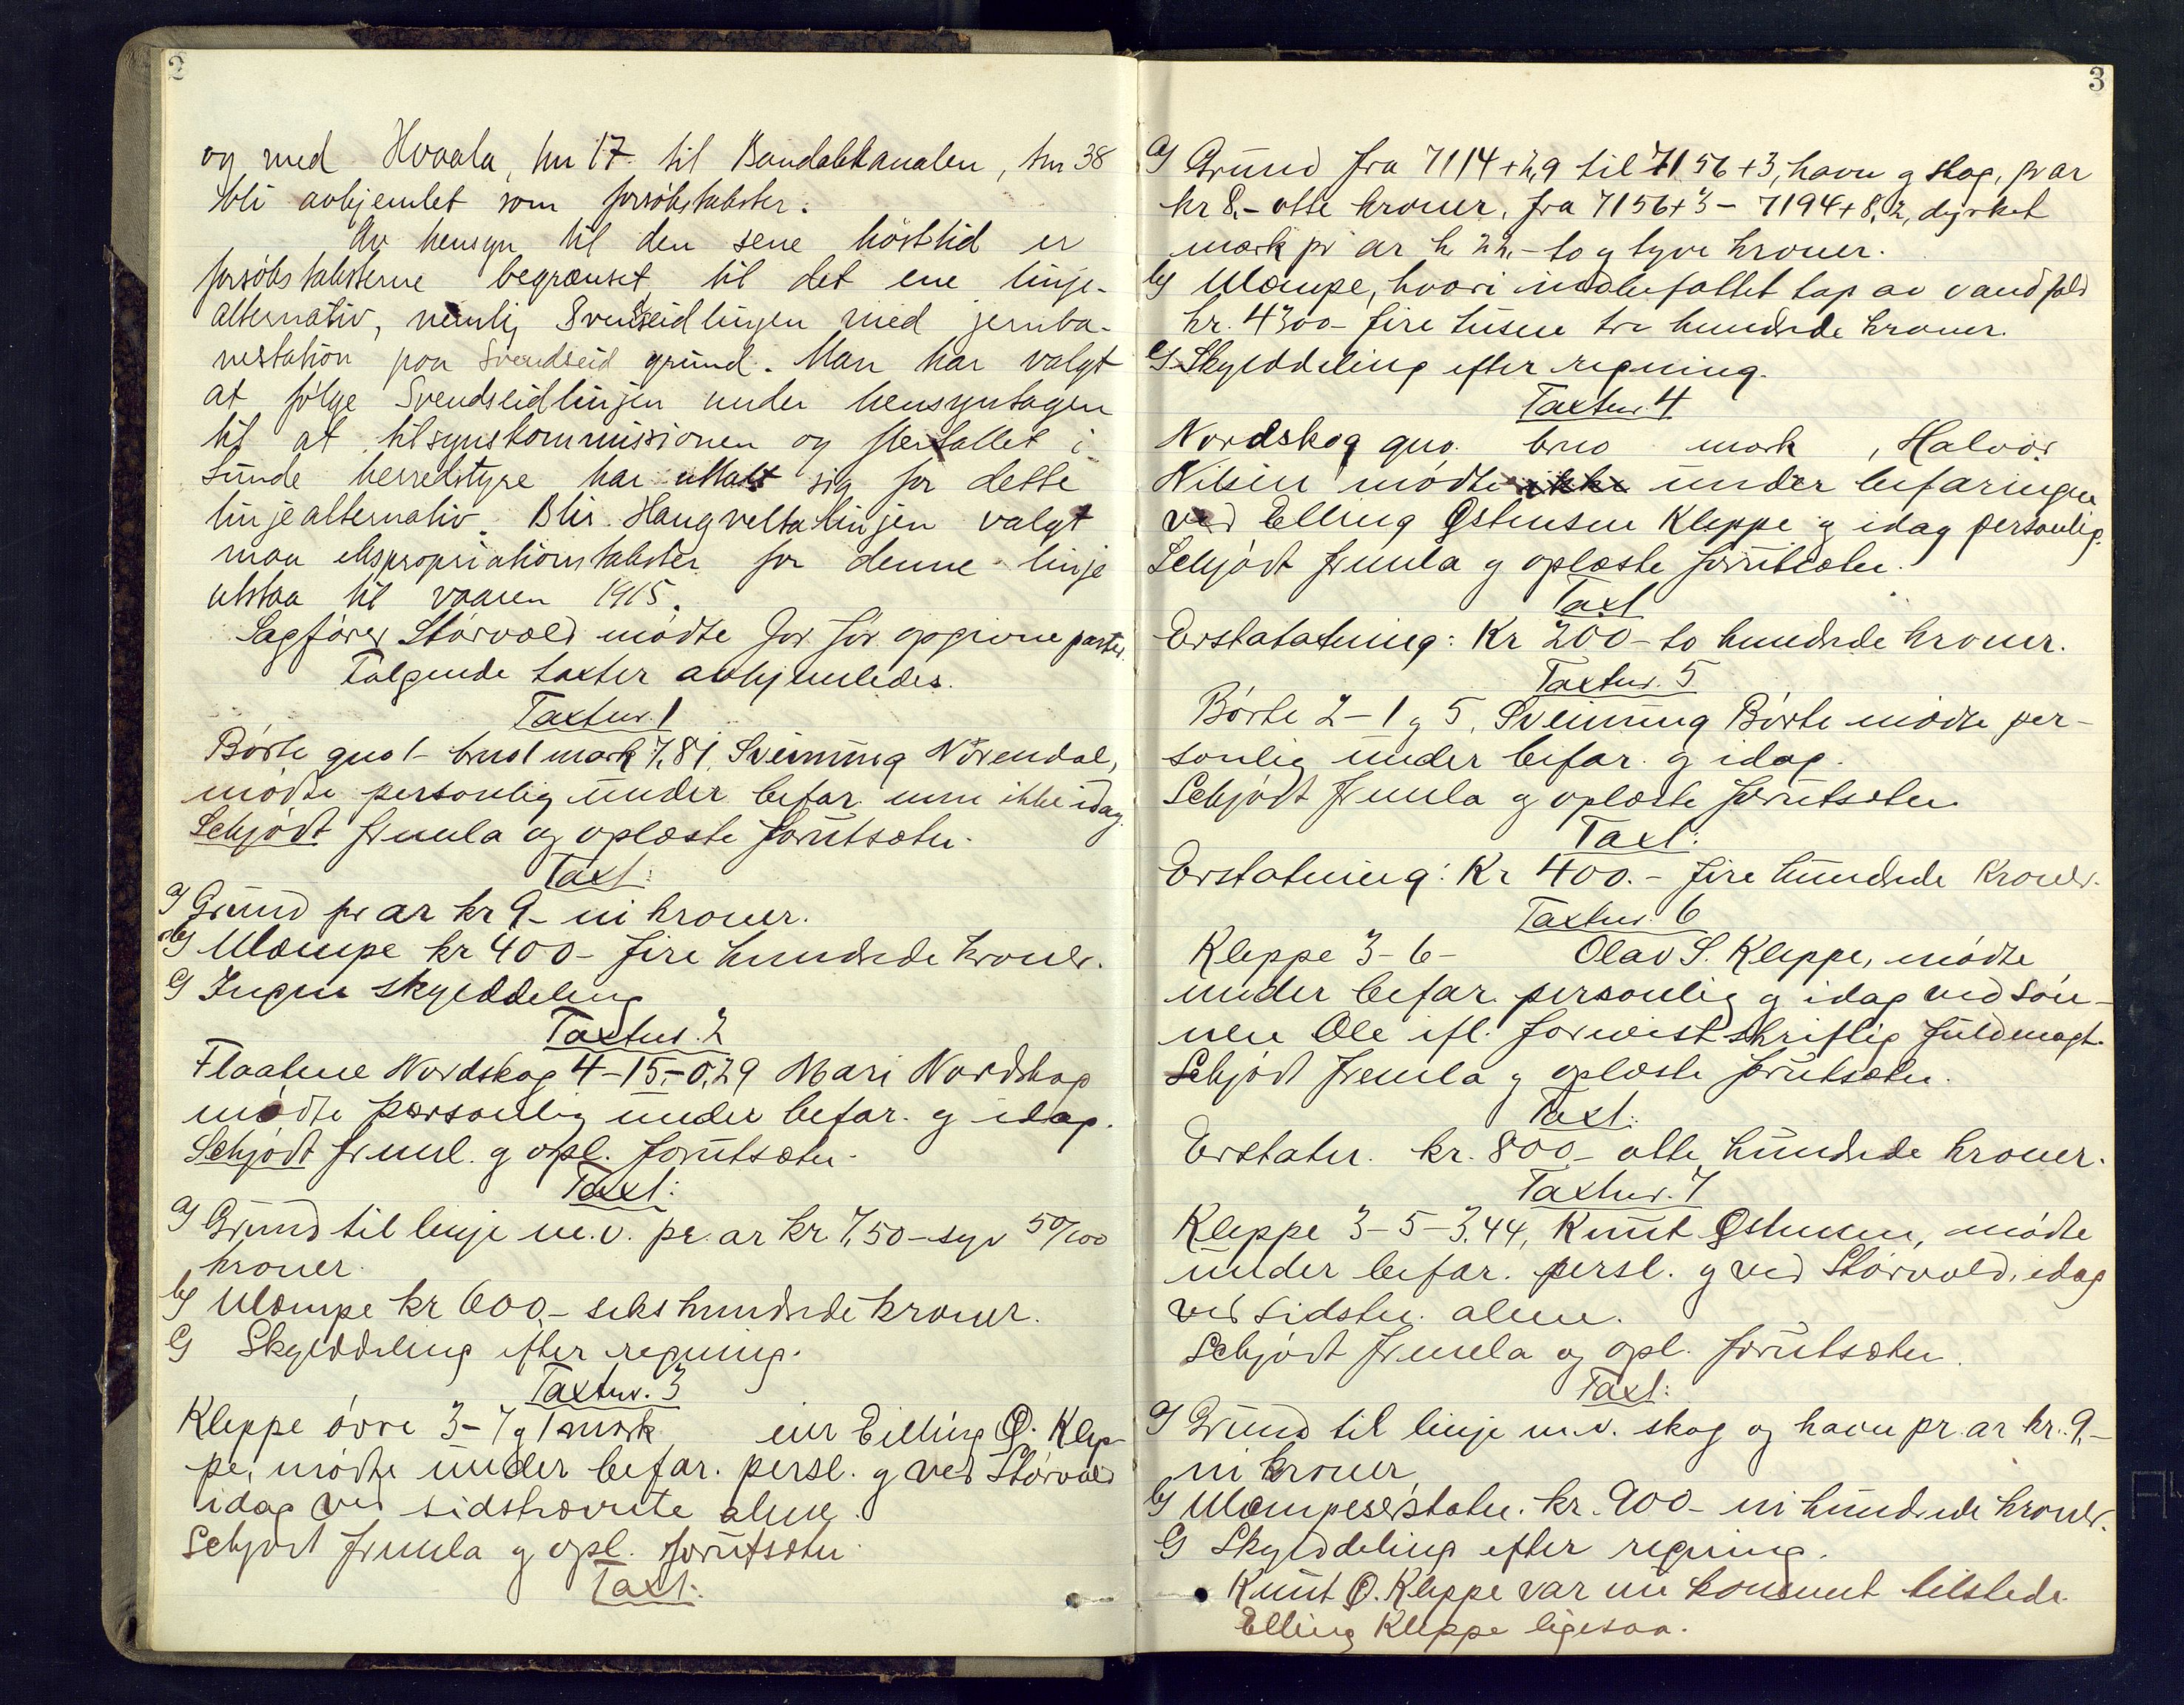 2
og med Hvaala, tnr 17 til Bandakkanalen, tnr 38
bli avhjemlet som forsøkstakster.
Av hensyn til den sene høsttid er
forsøkstaksterne begrænset til det ene linje-
alternativ, nemlig Svenseidlinjen med jernba-
nestation paa Svendseid grund. Man har valgt
at følge Svendseidlinjen under hensyntagen
til at tilsynskommissionen og flertallet i
Lunde herredstyre har uttalt sig for dette
linjealternativ. Blir Haugveltalinjen valgt
maa ekspropriationstakster for denne linje
utstaa til vaaren 1915.
Sagfører Størvold mødte for før opgivne parter.
Følgende taxter avhjemledes.
Taxtnr. 1
Børte gno 1 - brno 1 mark 7,81, Sveinung Nørendal,
mødte personlig under befar. men ikke idag.
Schjødt freml a og oplæste forutsætn.
Taxt:
a) Grund pr ar kr 9 - ni kroner.
b) Ulæmpe kr 400 - fire hundrede kroner.
c) Ingen skylddeling
Taxtnr. 2
Flaatene Nordskog 4-15-0,29 Mari Nordskog
mødte personlig under befar. og idag.
Schjødt freml. og opl. forutsætn.
Taxt:
a) Grund til linje m.v. pr. ar kr. 7,50 - syv 50/100
kroner.
b) Ulæmpe kr 600 - sekshundrede kroner.
c) Skylddeling efter regning.
Taxtnr. 3
Kleppe øvre 3-7 og 1 mark eier Elling Ø. Klep-
pe, mødte under befar. persl. og ved Størvold
idag ved sidstnævnte alene.
Schjødt freml a og opl. forutsætn.
Taxt:
3
a) Grund fra 7114+2,9 til 7156+3, havn og skog, pr ar
kr 8,- otte kroner, fra 7156+3 - 7194+8,2, dyrket
mark pr ar kr 22,- to og tyve kroner.
b) Ulæmpe, hvori indbefattet tap av vandfald
kr. 4300 - fire tusen tre hundrede kroner.
c) Skylddeling efter regning.
Taxtnr. 4
Nordskog gno. brno mark , Halvor
Nilsen mødte ikke under befaringen
ved Elling Østensen Kleppe og idag personlig.
Schjødt freml a og oplæste forutsætn.
Taxt
Erstatatning: Kr 200 - to hundrede kroner.
Taxtnr. 5
Børte 2-1 og 5, Sveinung Børte mødte per-
sonlig under befar. og idag.
Schjødt freml a og oplæste forutsætn.
Taxt:
Erstatning: Kr 400.- fire hundrede Kroner.
Taxtnr. 6
Kleppe 3-6- Olav S. Kleppe, mødte
under befar. personlig og idag ved søn-
nen Ole ifl. forevist skriftlig fuldmagt.
Schjødt freml a og oplæste forutsætn.
Taxt:
Erstatn. kr. 800 - otte hundrede kroner.
Taxtnr. 7
Kleppe 3-5-3,44, Knut Østensen, mødte
under befar. persl. og ved Størvold, idag
ved sidstn. alene.
Schjødt freml a og opl. forutsætn.
Taxt:
a) Grund til linje m.v. skog og havn pr. ar kr. 9,-
ni kroner
b) Ulæmpeserstatn. kr. 900 - ni hundrede kroner.
c) Skylddeling efter regning.
Knut Ø. Kleppe var nu kommet tilstede.
Elling Kleppe ligesaa.